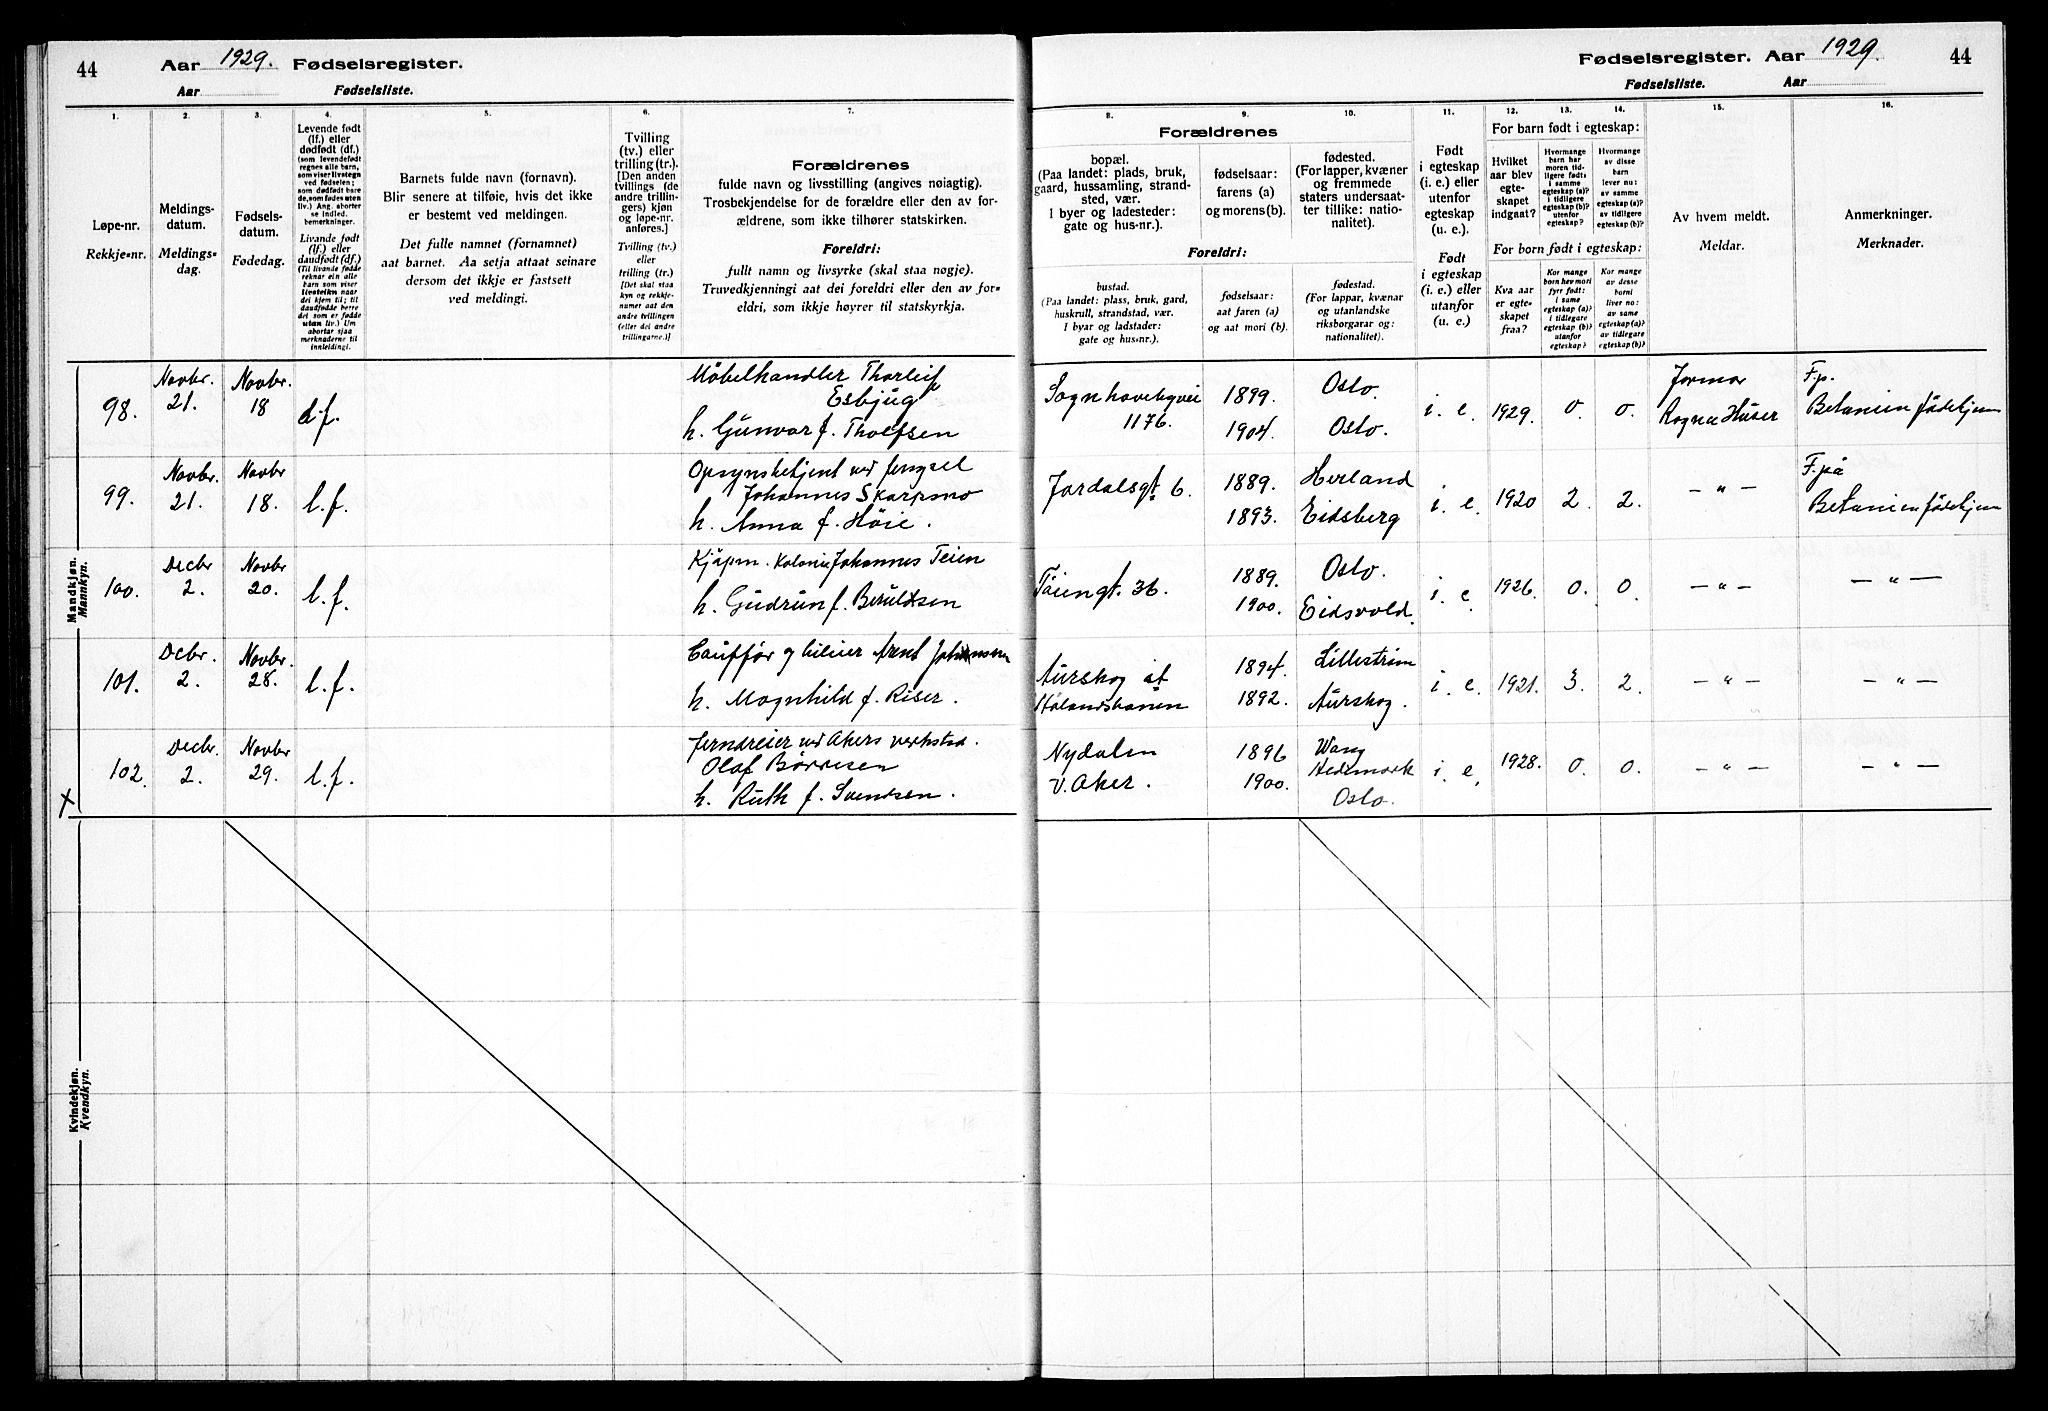 44
Aar 1929. Fødselsregister.
Aar Fødselsliste.
1.
2.
3.
4.
5.
6.
7.
Løpe-nr.
Rekkje-nr.
Meldings-
datum.
Meldings-
dag.
Fødsels-
datum.
Fødedag.
Levende født
(lf.) eller
dødfødt (df.)
(som levendefødt
regnes alle barn,
som viser livstegn
ved fødselen;
som dødfødt bare
de, som fødes uten
liv.) Ang. aborter
se indled.
bemerkninger.
Livande født
(lf.) eller
daudfødt (df.)
(Til livande fødde
reknar ein alle
barn som viser
livsteikn naar
dei kjem til; til
daudfødde berre
dei som er fødde
utan liv.) Um
abortar sjaa
merknaderne til
innleidingi.
Barnets fulde navn (fornavn).
Blir senere at tilføie, hvis det ikke
er bestemt ved meldingen.
Det fulle namnet (fornamnet)
aat barnet. Aa setja attaat seinare
dersom det ikkje er fastsett
ved meldingi.
Tvilling
(tv.) eller
trilling (tr.).
[Den anden
tvillings (de
andre trillin-
gers) kjøn
og løpe-nr.
anføres.]
Tvilling (tv.)
eller
trilling (tr.)
[Det skal staa
kyn og rekkje-
numer aat den
andre tvillingen
(eller dei andre
trillingarne.)]
Forældrenes
fulde navn og livsstilling (angives nøiagtig).
Trosbekjendelse for de forældre eller den av for-
ældrene, som ikke tilhører statskirken.
Foreldri:
fullt namn og livsyrke (skal staa nøgje).
Truvedkjenningi aat dei foreldri eller den av for-
eldri, som ikkje høyrer til statskyrkja.
Mandkjøn.
Mannkyn.
98.
Novbr.
21.
Novbr.
18
d.f.
Møbelhandler Thorleif
Esbjug
h. Gunvor f. Tholfsen
99.
Novbr.
21.
Novbr
18.
l.f.
Opsynsbetjent ved fengsel
Johannes Skarpsmo
h. Anna f. Høie.
100.
Decbr
2.
Novbr
20.
l.f.
Kjøpm. Johannes Teien
h. Gudrun f. Beruldsen
101.
Dcbr.
2.
Novbr.
28.
l.f.
Arent Johansen
h. Magnhild f. Riser.
102.
Decbr.
2.
Novbr
29.
l.f.
Jerndreier ved Akers verksted.
Olaf Børresen
h. Ruth f. Svendsen.
X
Kvindekjøn.
Kvendkyn.
Fødselsregister. Aar 1929.
44
Fødselsliste. Aar
8.
9.
10.
11.
12.
13.
14.
15.
16.
Forældrenes
bopæl.
(Paa landet: plads, bruk,
gaard, hussamling, strand-
sted, vær.
I byer og ladesteder:
gate og hus-nr.).
fødselsaar:
farens (a)
og morens (b).
fødested.
(For lapper, kvæner
og fremmede
staters undersaat-
ter tillike: natio-
nalitet).
Foreldri:
bustad.
(Paa landet: plass, bruk, gard,
huskrull, strandstad, vær.
I byar og ladstader:
gate og hus-nr.).
fødselsaar:
aat faren (a)
og aat mori (b).
fødestad.
(For lappar, kvænar
og utanlandske
riksborgarar og:
nationalitet).
Født
i egteskap
(i. e.) eller
utenfor
egteskap
(u. e.).
Født
i egteskap
(i. e.) eller
utanfor
(u. e.).
For barn født i egteskap:
Hvilket
aar blev
egte-
skapet
indgaat?
Hvormange
barn har
moren tid-
ligere født:
i samme
egteskap (a)?
i tidligere
egteskap (b)?
utenfor
egteskap?
Hvormange
av disse
barn
lever nu:
av samme
egteskap (a)?
av tidligere
egteskap (b)?
For born født i egteskap:
Kva aar
er egte-
skapet
fraa?
Kor mange
born hev mori
fyrr født:
i same
egteskap (a)?
i tidlegare
egteskap (b)?
utanfor
egteskap?
Kor mange
av desse
borni
liver no:
av same
egteskap (a)?
av tidlegare
egteskap (b)?
Av hvem meldt.
Meldar.
Anmerkninger.
Merknader.
1176.
1899.
1904.
Oslo.
Oslo.
i. e.
1929.
0.
0.
Jormor
Ragna Huser
F.p.
Betanien fødehjem
Jordalsgt. 6.
1889.
1893.
Herland
Eidsberg
i. e.
1920
2.
2.
— " —
F. på
Betanien fødehjem
Tøiengt. 36.
1889.
1900.
Oslo.
Eidsvold.
i. e
1926.
0.
0.
— " —
— " —
Aurskog st
Hølandsbanen
1894.
1892.
Lillestrøm
Aurskog.
i. e.
1921.
3.
2.
— " —
— " —
Nydalen
v. Aker.
1896
1900.
Wang
Hedemark
Oslo.
i. e.
1928.
0.
0.
— " —
— " —